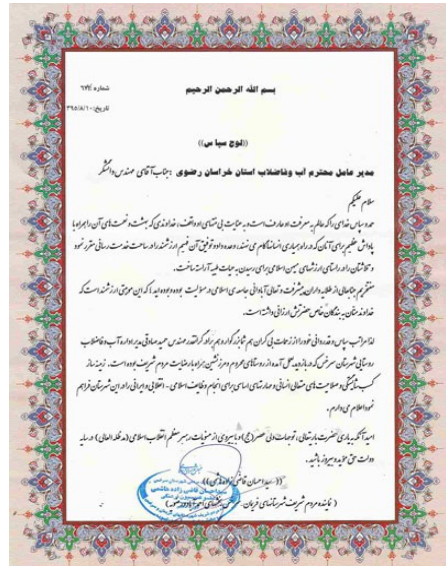 بسم الله الرحمن الرحيم
شماره ۹۷۴
تاریخ: ۳۹۵/۸/۱۰
((لوح سپاس))
مدیر عامل محترم آب وفاضلاب استان خراسان رضوی : جناب آقای مهندس
سلام علیکم
حمد و سپاس خدای را که عالم به معرفت او عارف است و به عنایت بی منتهای او واقف، خداوندی که بهشت و نعمت های آن را همراه با
پاداش عظیم برای آنان که در راه همیاری انسانها گام می نهند، وعده داده توفیق آن فهیم ارزشمند را در ساحت خدمت رسانی مقرر نمود
و تلاشتان را در راستای ارزشهای میهن اسلامی برای رسیدن به حیات طیبه آراسته ساخت.
مفتخریم جنابعالی از طلایه داران پیشرفت و تعالی آبادانی جامعه ی اسلامی در مسئولیت بوده و بوده اید؛ که این موهبتی ارزشمند است که
خداوند منان به بندگان خاص حضرتش ارزانی داشته است.
لذا مراتب سپاس و قدردانی خود را از زحمات بی کران هم تبار بزرگوار و همراه گرانقدر، مهندس حمید صادقی مدیر اداره آب و فاضلاب
روستایی شهرستان سرخس که در بازدید بعمل آمده از روستاهای محروم و مرزنشین همراه با رضایت مردم شریف بوده است. زمینه ساز
کسب شایستگی و صلاحیت های متعالی انسانی و مهارتهای اساسی برای انجام وظایف اسلامی - انقلابی و ایرانی را در این شهرستان فراهم
نمود اعلام می دارم.
امید آنکه به یاری حضرت باریتعالی، توجهات ولی عصر (عج) و با پیروی از منویات رهبر معظم انقلاب اسلامی (مدظله العالی) در سایه
دولت حق مؤید و پیروز باشید.
((سید احسان قاضی زاده هاشمی))
سید احسان قاضی زاده هاشمی
( نماینده مردم شریف شهرستانهای فریمان-